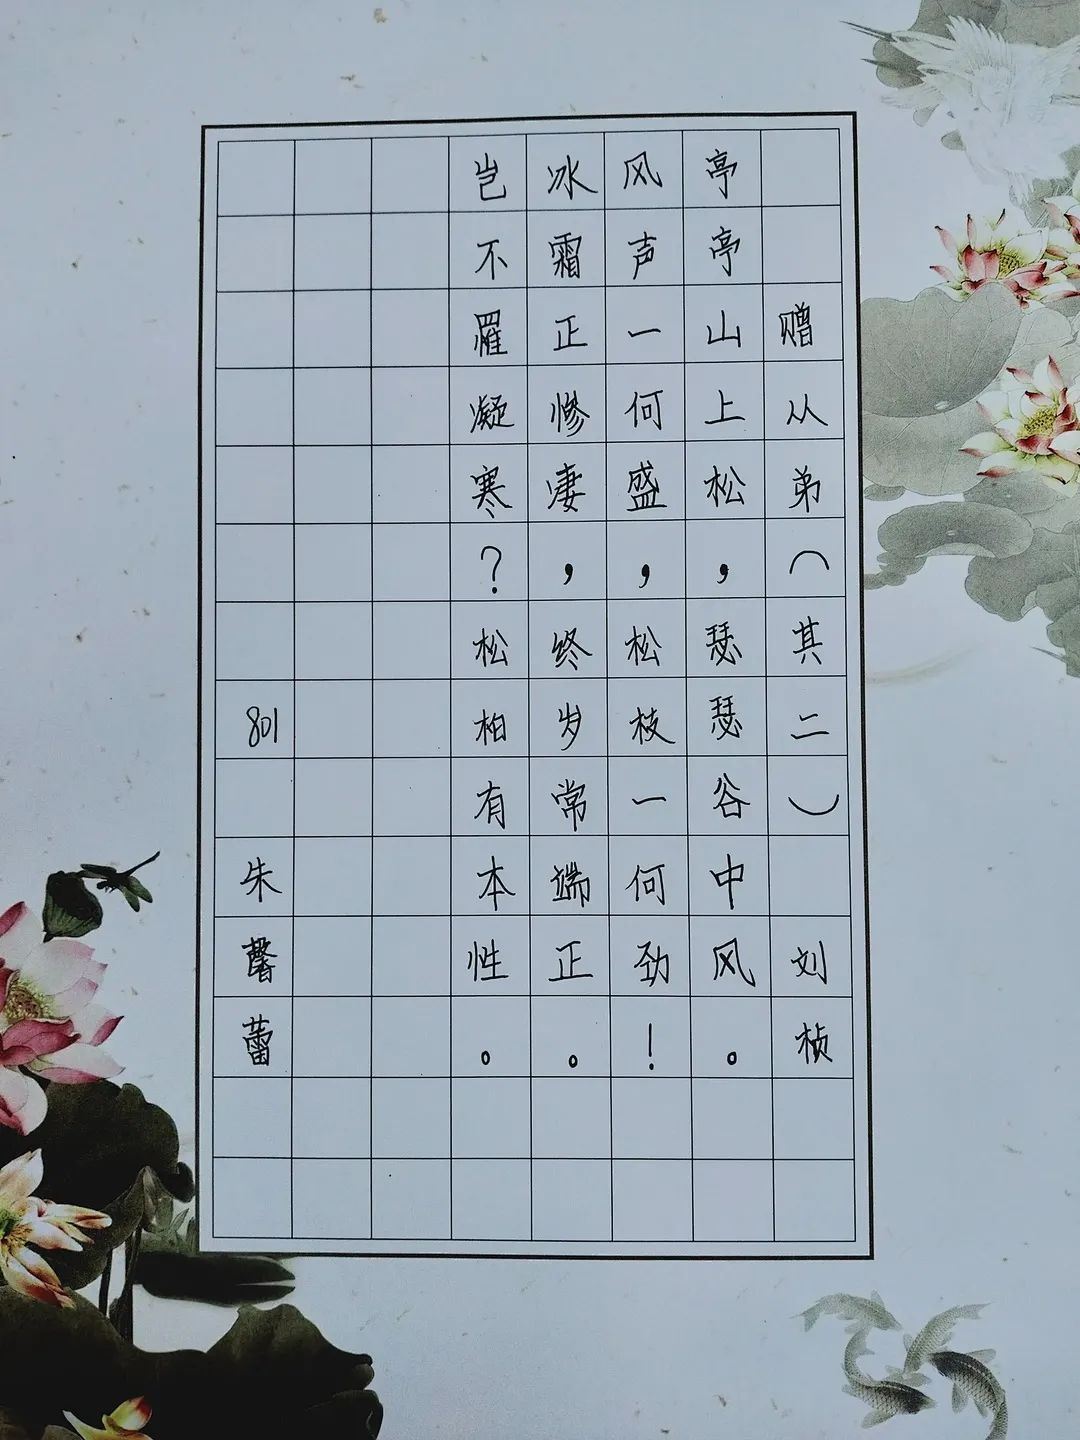 赠从弟（其二） 刘桢
亭亭山上松，瑟瑟谷中风。
风声一何盛，松枝一何劲！
冰霜正惨凄，终岁常端正。
岂不罹凝寒？松柏有本性。
801 朱馨蕾